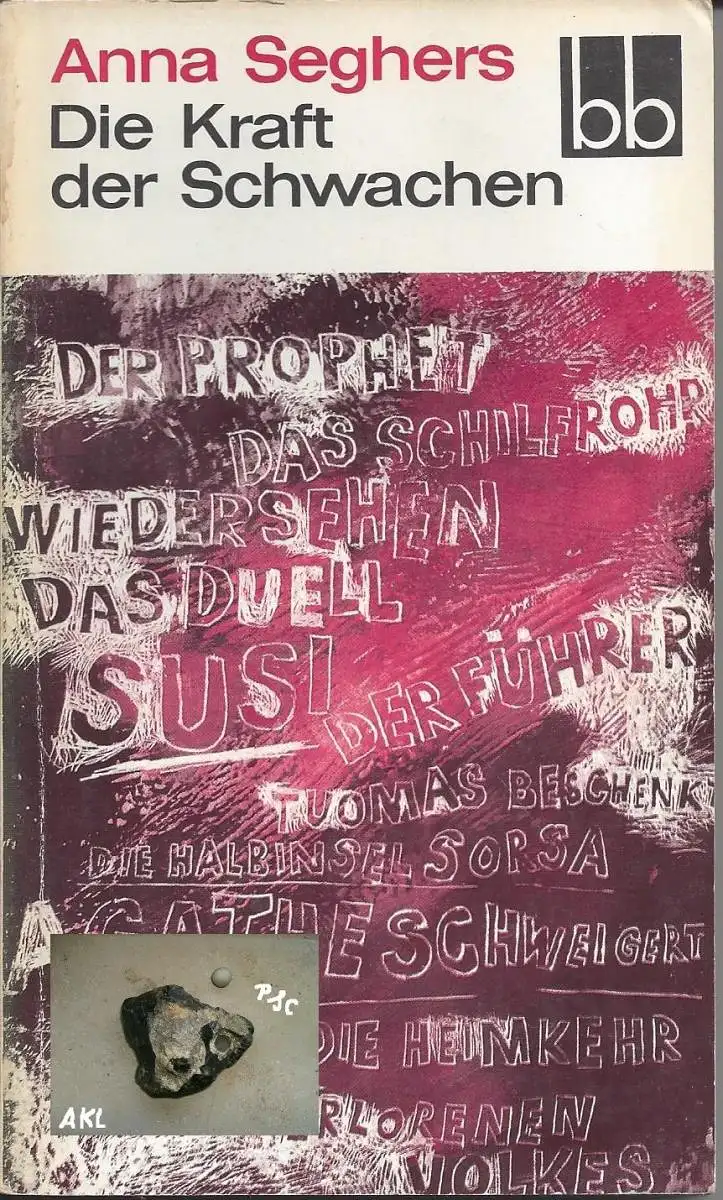 Anna Seghers
bb
Die Kraft
der Schwachen
DER PROPHET
DAS SCHILFROHR
WIEDERSEHEN
DAS DUELL
SUSI
DER FÜHRER
TUOMAS BESCHENKT
DIE HALBINSEL SORSA
AGATHE SCHWEIGERT
DIE HEIMKEHR
RLORENEN
VOLKES
PSC
AKL